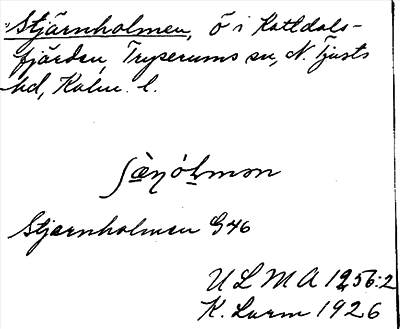 Stjärnholmen, ö i Kattdals-
fjärden, Tryserums sn, N. Tjusts
hd, Kalm. l.
Stjernholmen G46
ULMA 1256:2
K. Lurm 1926